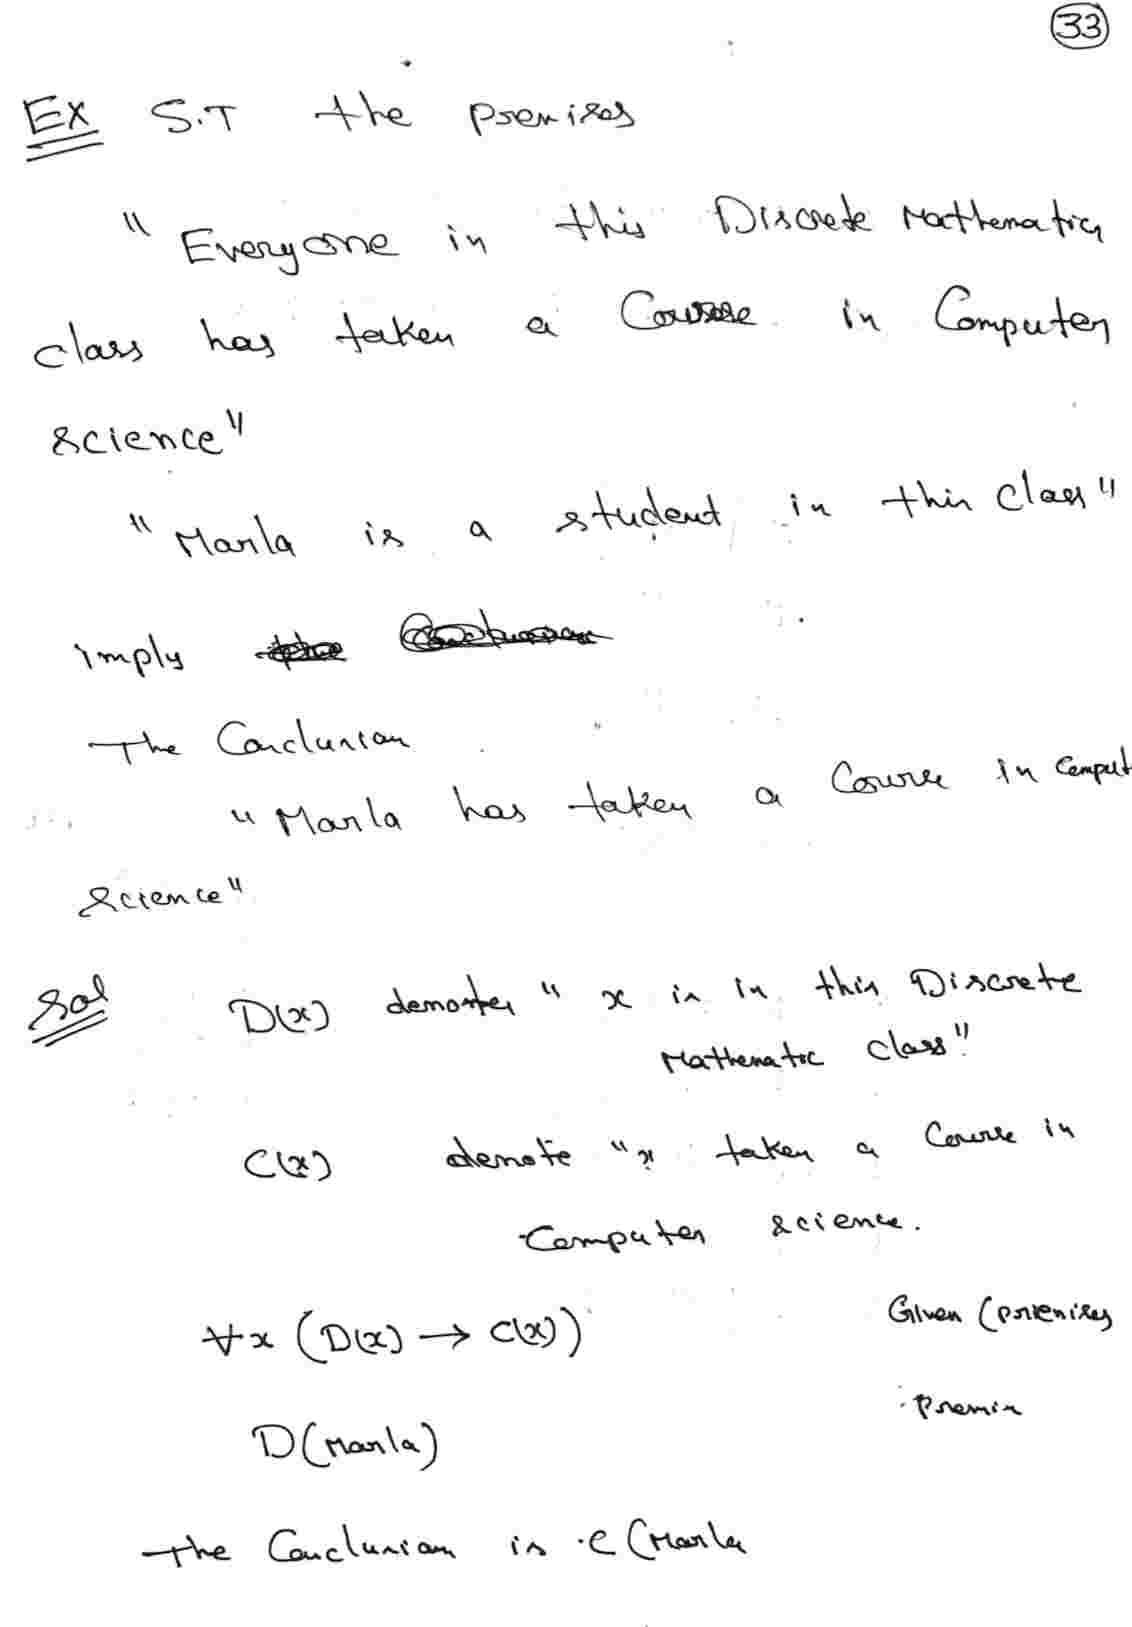 33
Ex S.T the premises
"Everyone in this Discrete Mathematics
class has taken a Course in Computer
science"
"Marla is a student in this class"
imply
The Conclusion
"Marla has taken a Course in Comput
science"
Sol D(x) denotes "x is in this Discrete
Mathematic class"
C(x) denote "x taken a Course in
Computer science.
∀x (D(x) → C(x)) Given (premises
D(Marla) Premis
The Conclusion is C(Marla